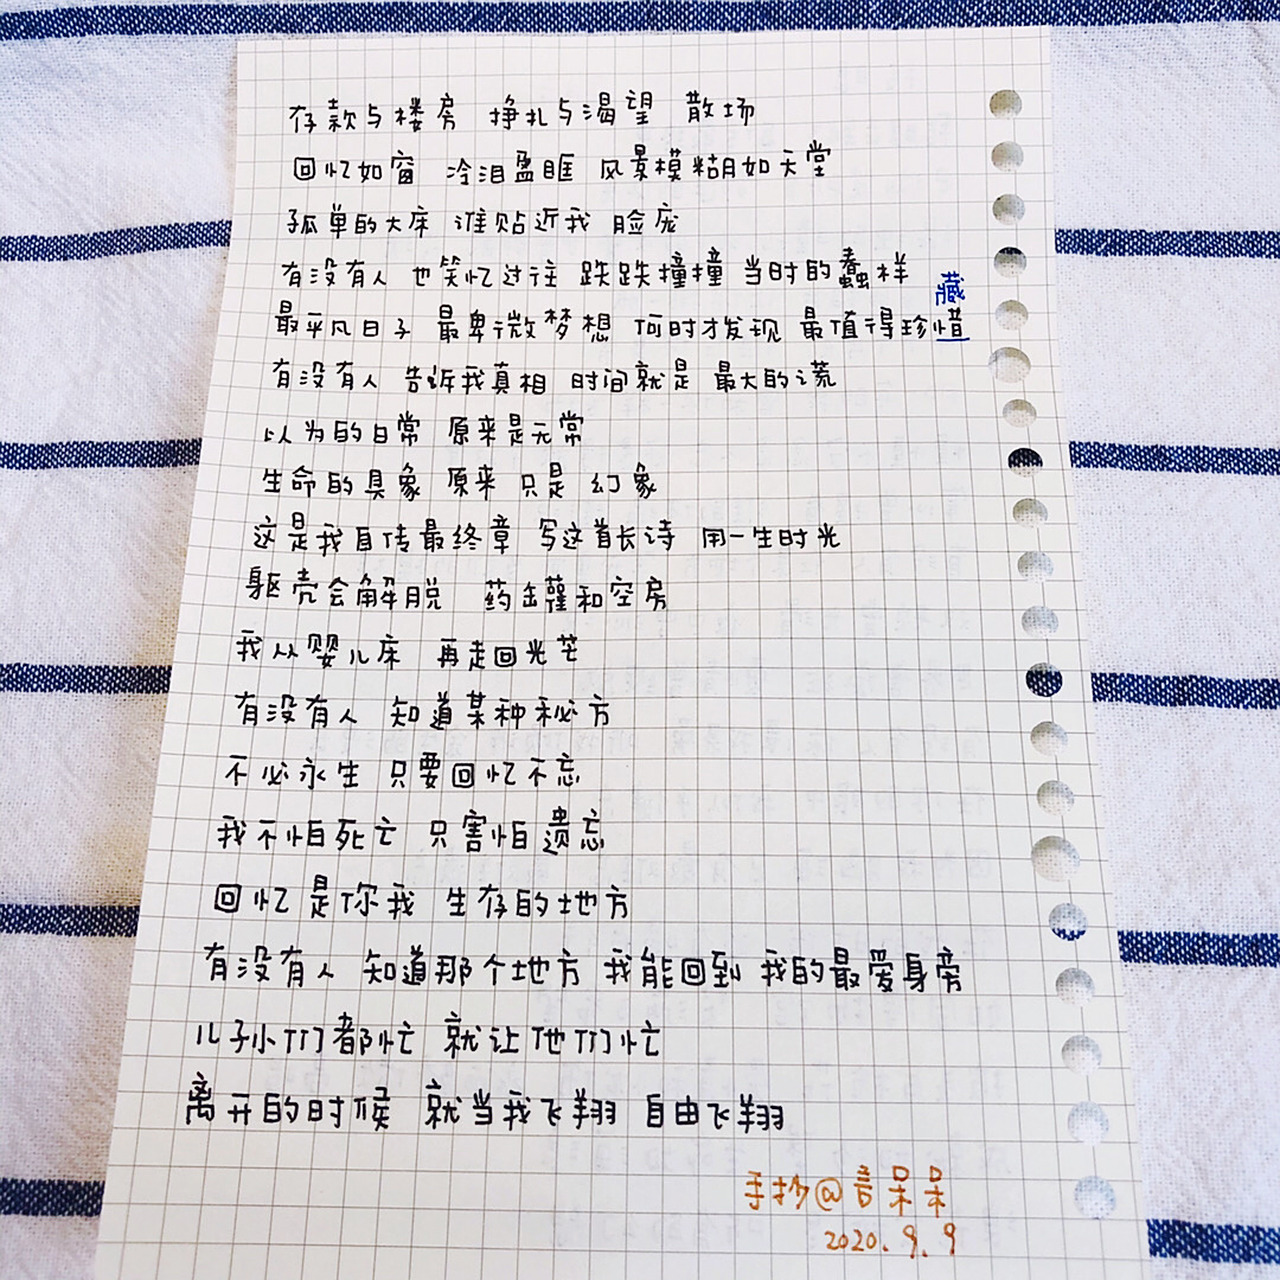 存款与楼房 挣扎与渴望 散场
回忆如窗 冷泪盈眶 风景模糊如天堂
孤单的大床 谁贴近我 脸庞
有没有人 也笑忆过往 跌跌撞撞 当时的蠢样
藏
最平凡日子 最卑微梦想 何时才发现 最值得珍惜
有没有人 告诉我真相 时间就是 最大的谎
以为的日常 原来是无常
生命的具象 原来 只是 幻象
这是我自传最终章 写这首长诗 用一生时光
躯壳会解脱 药罐和空房
我从婴儿床 再走回光芒
有没有人 知道某种秘方
不必永生 只要回忆不忘
我不怕死亡 只害怕遗忘
回忆是你我 生存的地方
有没有人 知道那个地方 我能回到 我的最爱身旁
儿孙们都忙 就让他们忙
离开的时候 就当我飞翔 自由飞翔
手抄@言呆呆
2020.9.9